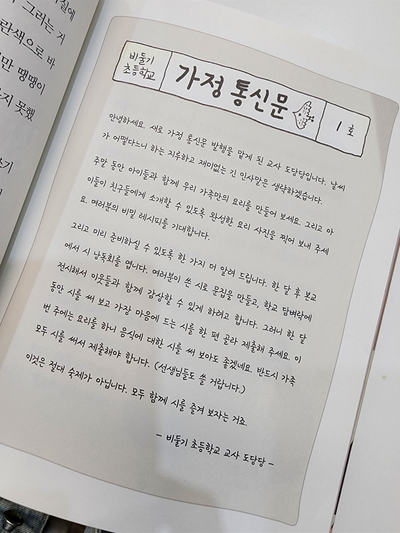 그러는 거
란색으로 바
만 땡땡이
지 못했
비둘기
초등학교
가정 통신문
1호
안녕하세요. 새로 가정 통신문 발행을 맡게 된 교사 도당당입니다. 날씨
가 어떻다느니 하는 지루하고 재미없는 긴 인사말은 생략하겠습니다.
주말 동안 아이들과 함께 우리 가족만의 요리를 만들어 보세요. 그리고 아
이들이 친구들에게 소개할 수 있도록 완성한 요리 사진을 찍어 보내 주세
요. 여러분의 비밀 레시피를 기대합니다.
그리고 미리 준비하실 수 있도록 한 가지 더 알려 드립니다. 한 달 후 본교
에서 시 낭독회를 엽니다. 여러분이 쓴 시로 문집을 만들고, 학교 담벼락에
전시해서 이웃들과 함께 감상할 수 있게 하려고 합니다. 그러니 한 달
동안 시를 써 보고 가장 마음에 드는 시를 한 편 골라 제출해 주세요. 이
번 주에는 요리를 하니 음식에 대한 시를 써 보아도 좋겠네요. 반드시 가족
모두 시를 써서 제출해야 합니다. (선생님들도 쓸 거랍니다.)
이것은 절대 숙제가 아닙니다. 모두 함께 시를 즐겨 보자는 거죠.
– 비둘기 초등학교 교사 도당당 –